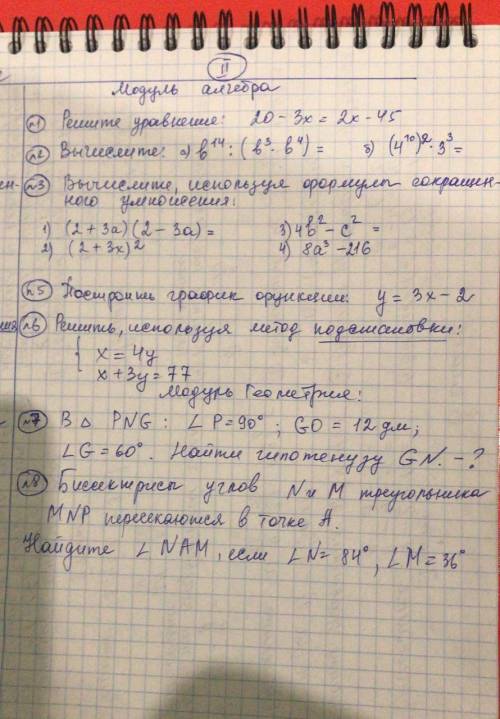 II
Модуль алгебра
№1 Решите уравнение: 20 - 3x = 2x - 45
№2 Вычислите: а) b¹⁴ : (b³ · b⁴) = б) (4¹⁰)² · 3³ =
№3 Вычислите, используя формулы сокращен-
ного умножения:
1) (2 + 3a)(2 - 3a) = 3) 4b² - c² =
2) (2 + 3x)² 4) 8a³ - 216
№5 Построить график функции: y = 3x - 2
№6 Решить, используя метод подстановки:
{ x = 4y
x + 3y = 77
Модуль Геометрия:
№7 В △ PNG: ∠P = 90°; GO = 12 дм;
∠G = 60°. Найти гипотенузу GN. - ?
№8 Биссектрисы углов N и M треугольника
MNP пересекаются в точке A.
Найдите ∠NAM, если ∠N = 84°, ∠M = 36°